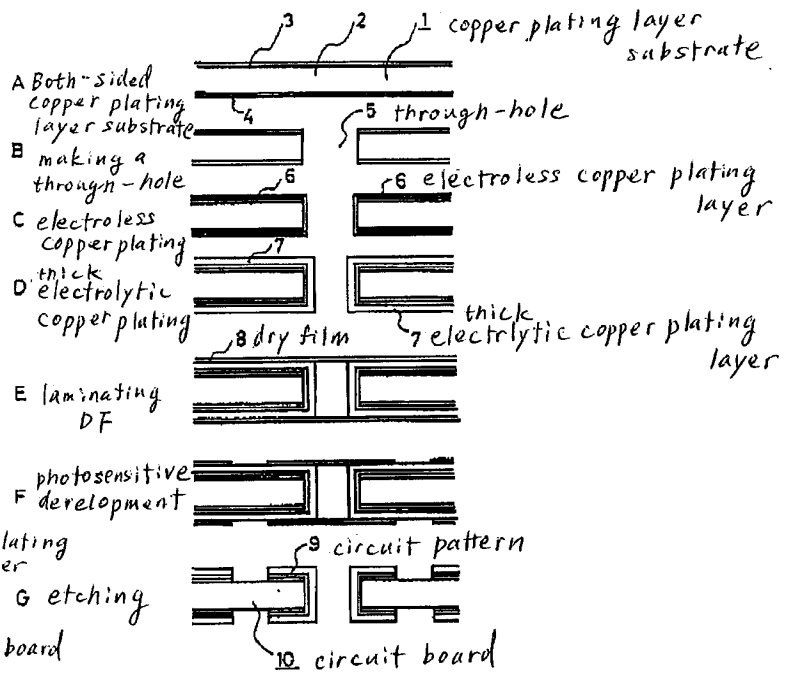 3 2 1 copper plating layer
substrate
A Both-sided
copper plating
layer substrate
4
5 through-hole
B making a
through-hole
6
6 electroless copper plating
layer
C electroless
copper plating
7
thick
D electrolytic
copper plating
thick
7 electrlytic copper plating
layer
8 dry film
E laminating
DF
photosensitive
F derelopment
lating
er
9 circuit pattern
G etching
board
10 circuit board